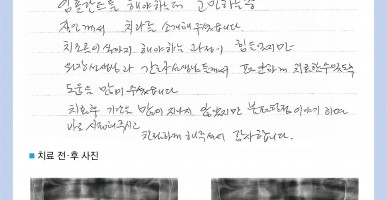 임플란트를 해야하는데 고민하는중
지인께서 치과를 소개해주셨습니다.
치료를 해야하는 과정이 힘든되지만
원장선생님과 간호사선생님들께서 편안하게 치료할수있도록
도움을 많이 주셨습니다
치료후 기간은 많이 지나지 않았지만 불편한점 이야기 하면
바로 시정해주시고
친절하게 해주셔서 감사합니다.
■ 치료 전·후 사진